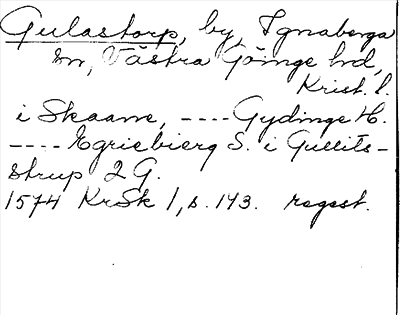 Gulastorp, by, Ignaberga
sn, Västra Göinge hd,
Krist. l.
i Skaane, ---- Gydinge H.
---- Egriebierg S. i Gullits-
strup 2 G.
1574 KrSk 1, s. 143. regest.